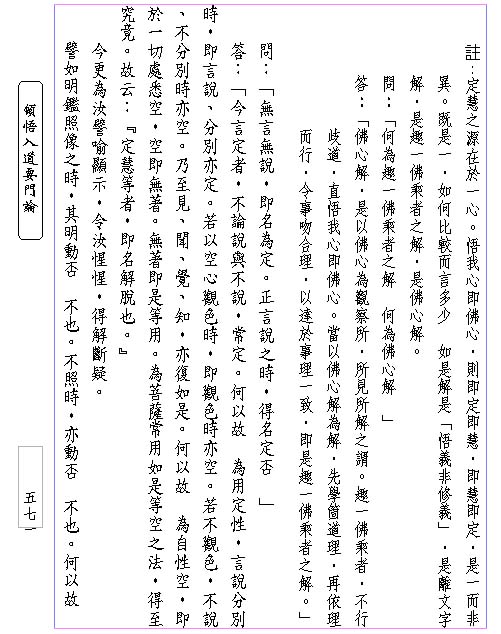 註：定慧之源在於一心。悟我心即佛心，則即定即慧，即慧即定，是一而非
異。既是一，如何比較而言多少　如是解是「悟義非修義」，是離文字
解，是趣一佛乘者之解，是佛心解。
問：「何為趣一佛乘者之解　何為佛心解　」
答：「佛心解，是以佛心為觀察所，所見所解之謂。趣一佛乘者，不行
歧道，直悟我心即佛心。當以佛心解為解，先學箇道理，再依理
而行，令事吻合理，以達於事理一致，即是趣一佛乘者之解。」
問：「無言無說，即名為定。正言說之時，得名定否　」
答：「今言定者，不論說與不說，常定。何以故　為用定性，言說分別
時，即言說、分別亦定。若以空心觀色時，即觀色時亦空。若不觀色，不說
、不分別時亦空。乃至見、聞、覺、知，亦復如是。何以故　為自性空，即
於一切處悉空，空即無著。無著即是等用。為菩薩常用如是等空之法，得至
究竟。故云：『定慧等者，即名解脫也。』
今更為汝譬喻顯示，令汝惺惺，得解斷疑。
譬如明鑑照像之時，其明動否　不也。不照時，亦動否　不也。何以故
頓悟入道要門論
五七一